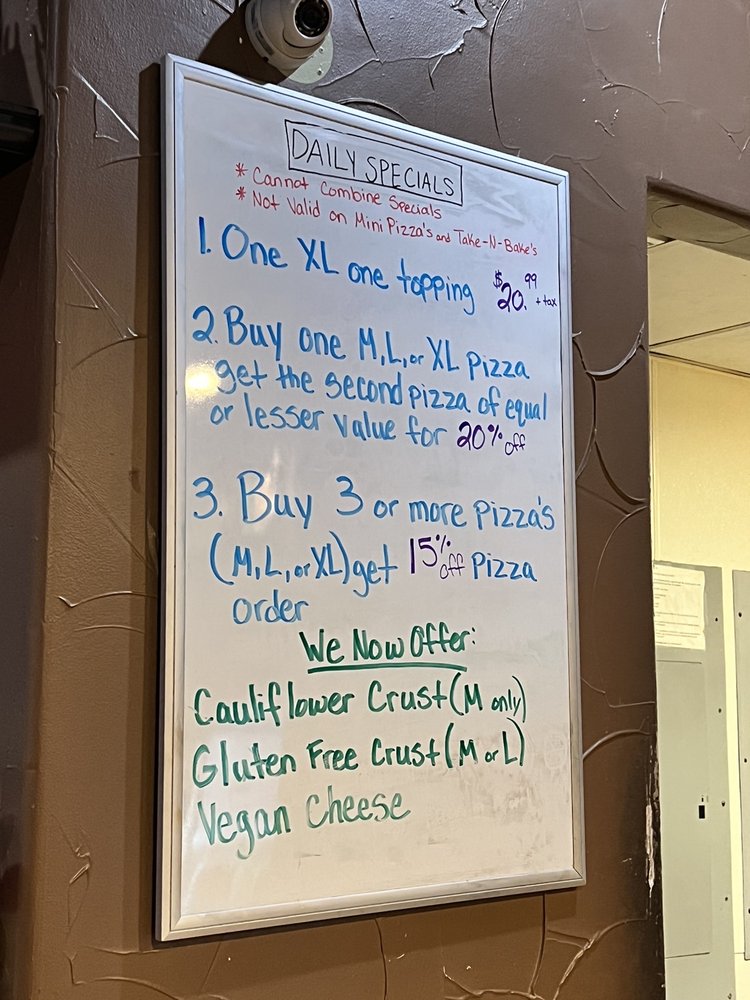 DAILY SPECIALS
* Cannot Combine Specials
* Not Valid on Mini Pizza's and Take-N-Bake's
1. One XL one topping $20.99 + tax
2. Buy one M, L, or XL Pizza
get the second pizza of equal
or lesser value for 20% off
3. Buy 3 or more Pizza's
(M, L, or XL) get 15% off Pizza
order
We Now Offer:
Cauliflower Crust (M only)
Gluten Free Crust (M or L)
Vegan Cheese